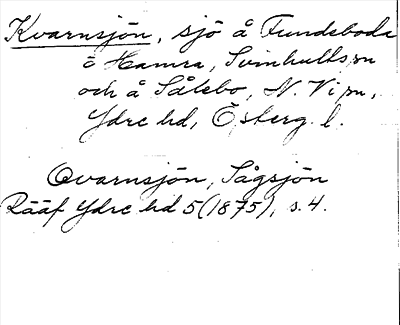 Kvarnsjön, sjö å Fundeboda
o Hamra, Svinhults sn
och å Sålebo, N. Vi sn,
Ydre hd, Österg. l.
Qvarnsjön, Sågsjön
Rääf Ydre hd 5 (1875), s. 4.